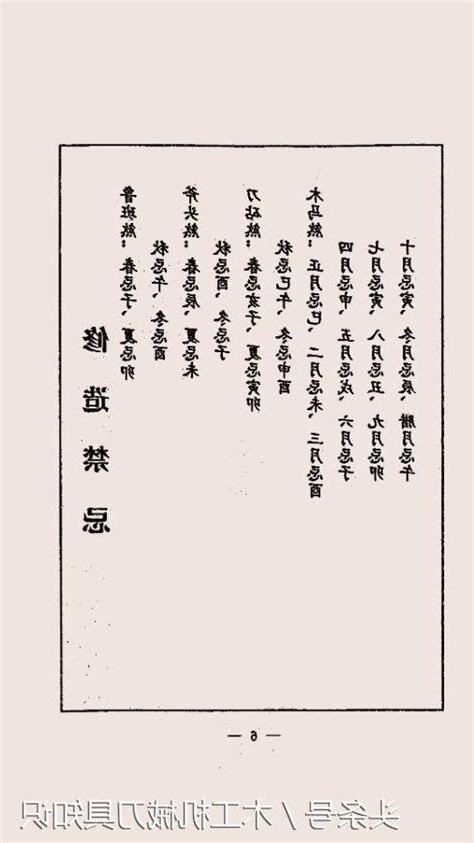 修造禁忌
鲁班煞：春忌子、夏忌卯
秋忌午、冬忌酉
斧头煞：春忌辰、夏忌未
秋忌酉、冬忌子
刀砧煞：春忌亥子、夏忌寅卯
秋忌巳午、冬忌申酉
木马煞：正月忌巳、二月忌未、三月忌酉
四月忌申、五月忌戌、六月忌子
七月忌寅、八月忌丑、九月忌卯
十月忌寅、冬月忌辰、腊月忌午
— 6 —
头条号/木工机械刀具知识